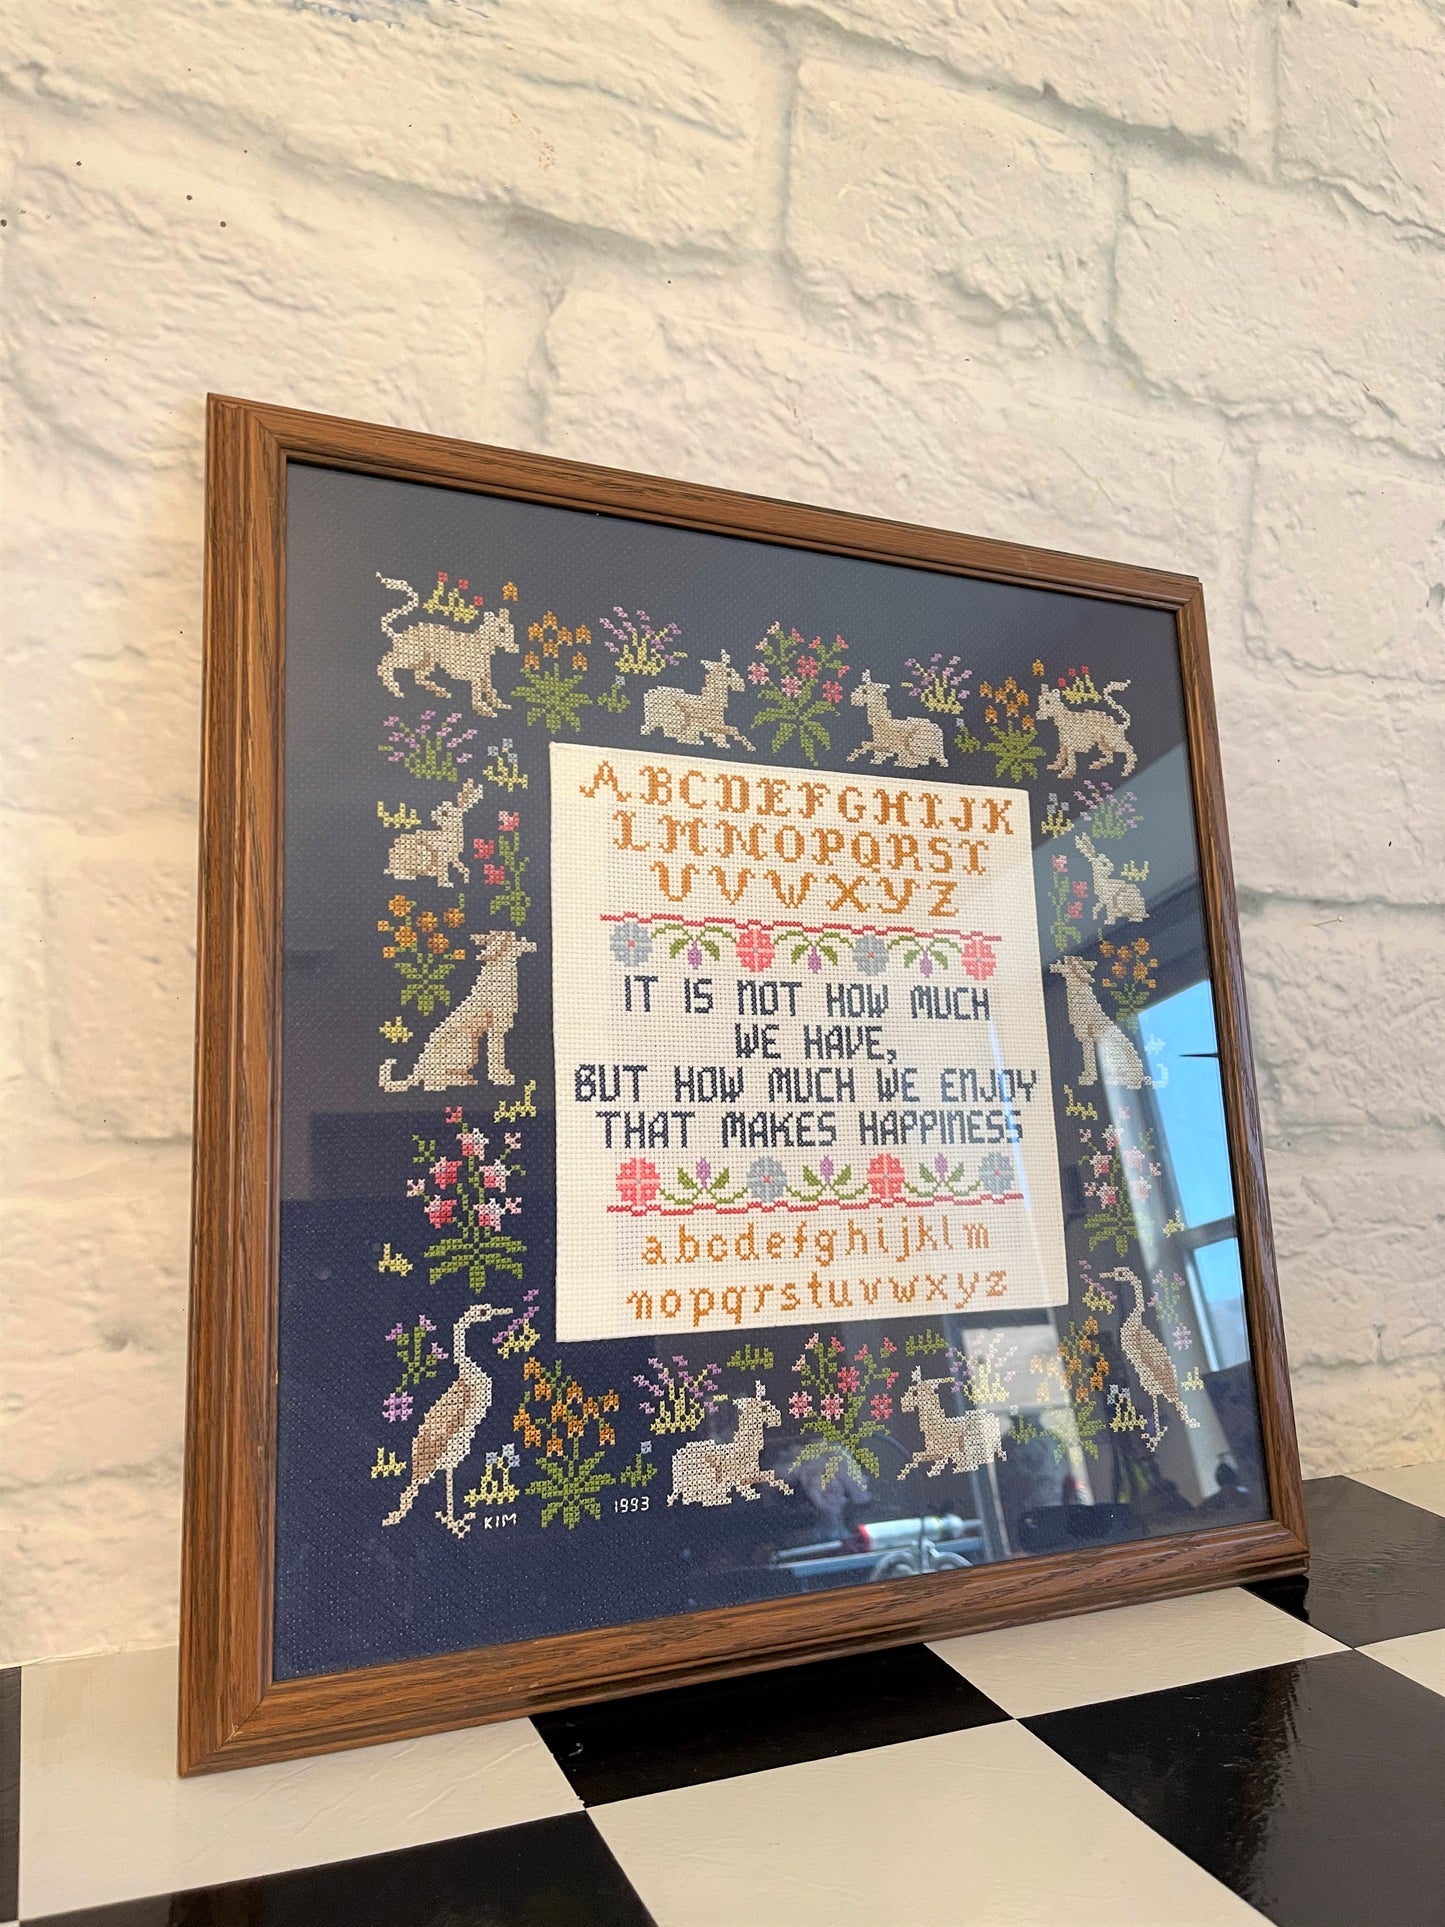 ABCDEFGHIJK
LMNOPQRST
UVWXYZ
IT IS NOT HOW MUCH
WE HAVE,
BUT HOW MUCH WE ENJOY
THAT MAKES HAPPINESS
abcdefghijklm
nopqrstuvwxyz
KIM 1993